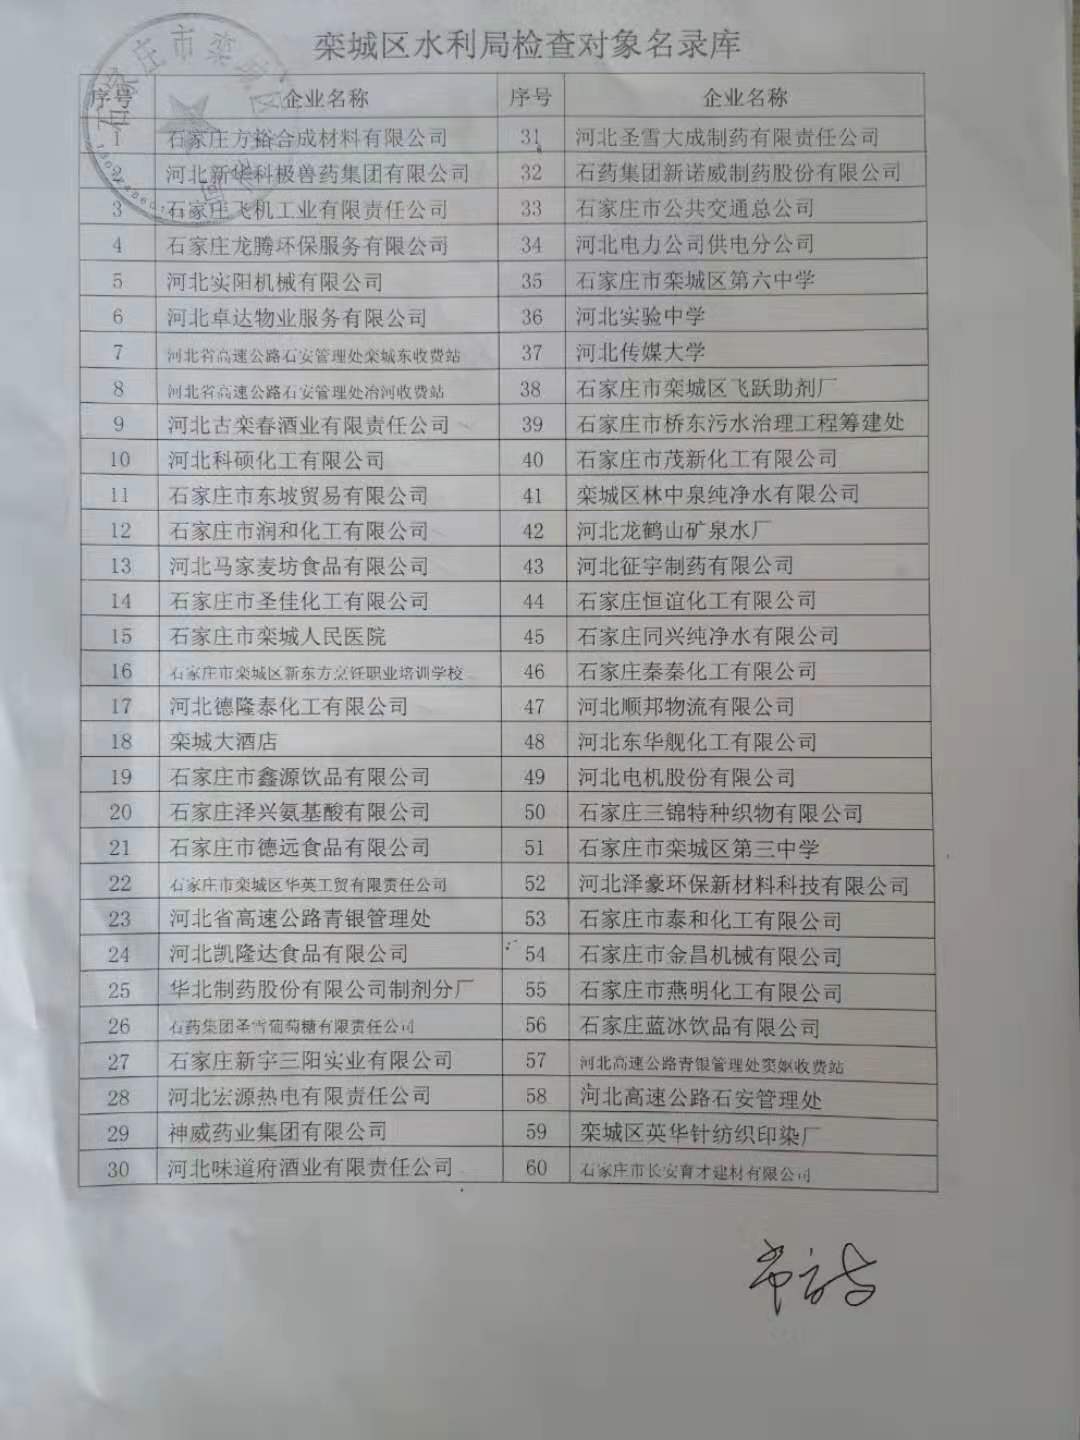 栾城区水利局检查对象名录库
序号 企业名称 序号 企业名称
1 石家庄方裕合成材料有限公司 31 河北圣雪大成制药有限责任公司
河北新华科极兽药集团有限公司 32 石药集团新诺威制药股份有限公司
3 石家庄飞机工业有限责任公司 33 石家庄市公共交通总公司
4 石家庄龙腾环保服务有限公司 34 河北电力公司供电分公司
5 河北实阳机械有限公司 35 石家庄市栾城区第六中学
6 河北卓达物业服务有限公司 36 河北实验中学
7 河北省高速公路石安管理处栾城东收费站 37 河北传媒大学
8 河北省高速公路石安管理处冶河收费站 38 石家庄市栾城区飞跃助剂厂
9 河北古栾春酒业有限责任公司 39 石家庄市桥东污水治理工程筹建处
10 河北科硕化工有限公司 40 石家庄市茂新化工有限公司
11 石家庄市东坡贸易有限公司 41 栾城区林中泉纯净水有限公司
12 石家庄市润和化工有限公司 42 河北龙鹤山矿泉水厂
13 河北马家麦坊食品有限公司 43 河北征宇制药有限公司
14 石家庄市圣佳化工有限公司 44 石家庄恒谊化工有限公司
15 石家庄市栾城人民医院 45 石家庄同兴纯净水有限公司
16 石家庄市栾城区新东方烹饪职业培训学校 46 石家庄秦秦化工有限公司
17 河北德隆泰化工有限公司 47 河北顺邦物流有限公司
18 栾城大酒店 48 河北东华舰化工有限公司
19 石家庄市鑫源饮品有限公司 49 河北电机股份有限公司
20 石家庄泽兴氨基酸有限公司 50 石家庄三锦特种织物有限公司
21 石家庄市德远食品有限公司 51 石家庄市栾城区第三中学
22 石家庄市栾城区华英工贸有限责任公司 52 河北泽豪环保新材料科技有限公司
23 河北省高速公路青银管理处 53 石家庄市泰和化工有限公司
24 河北凯隆达食品有限公司 54 石家庄市金昌机械有限公司
25 华北制药股份有限公司制剂分厂 55 石家庄市燕明化工有限公司
26 石药集团圣雪葡萄糖有限责任公司 56 石家庄蓝冰饮品有限公司
27 石家庄新宇三阳实业有限公司 57 河北高速公路青银管理处窦妪收费站
28 河北宏源热电有限责任公司 58 河北高速公路石安管理处
29 神威药业集团有限公司 59 栾城区英华针纺织印染厂
30 河北味道府酒业有限责任公司 60 石家庄市长安育才建材有限公司